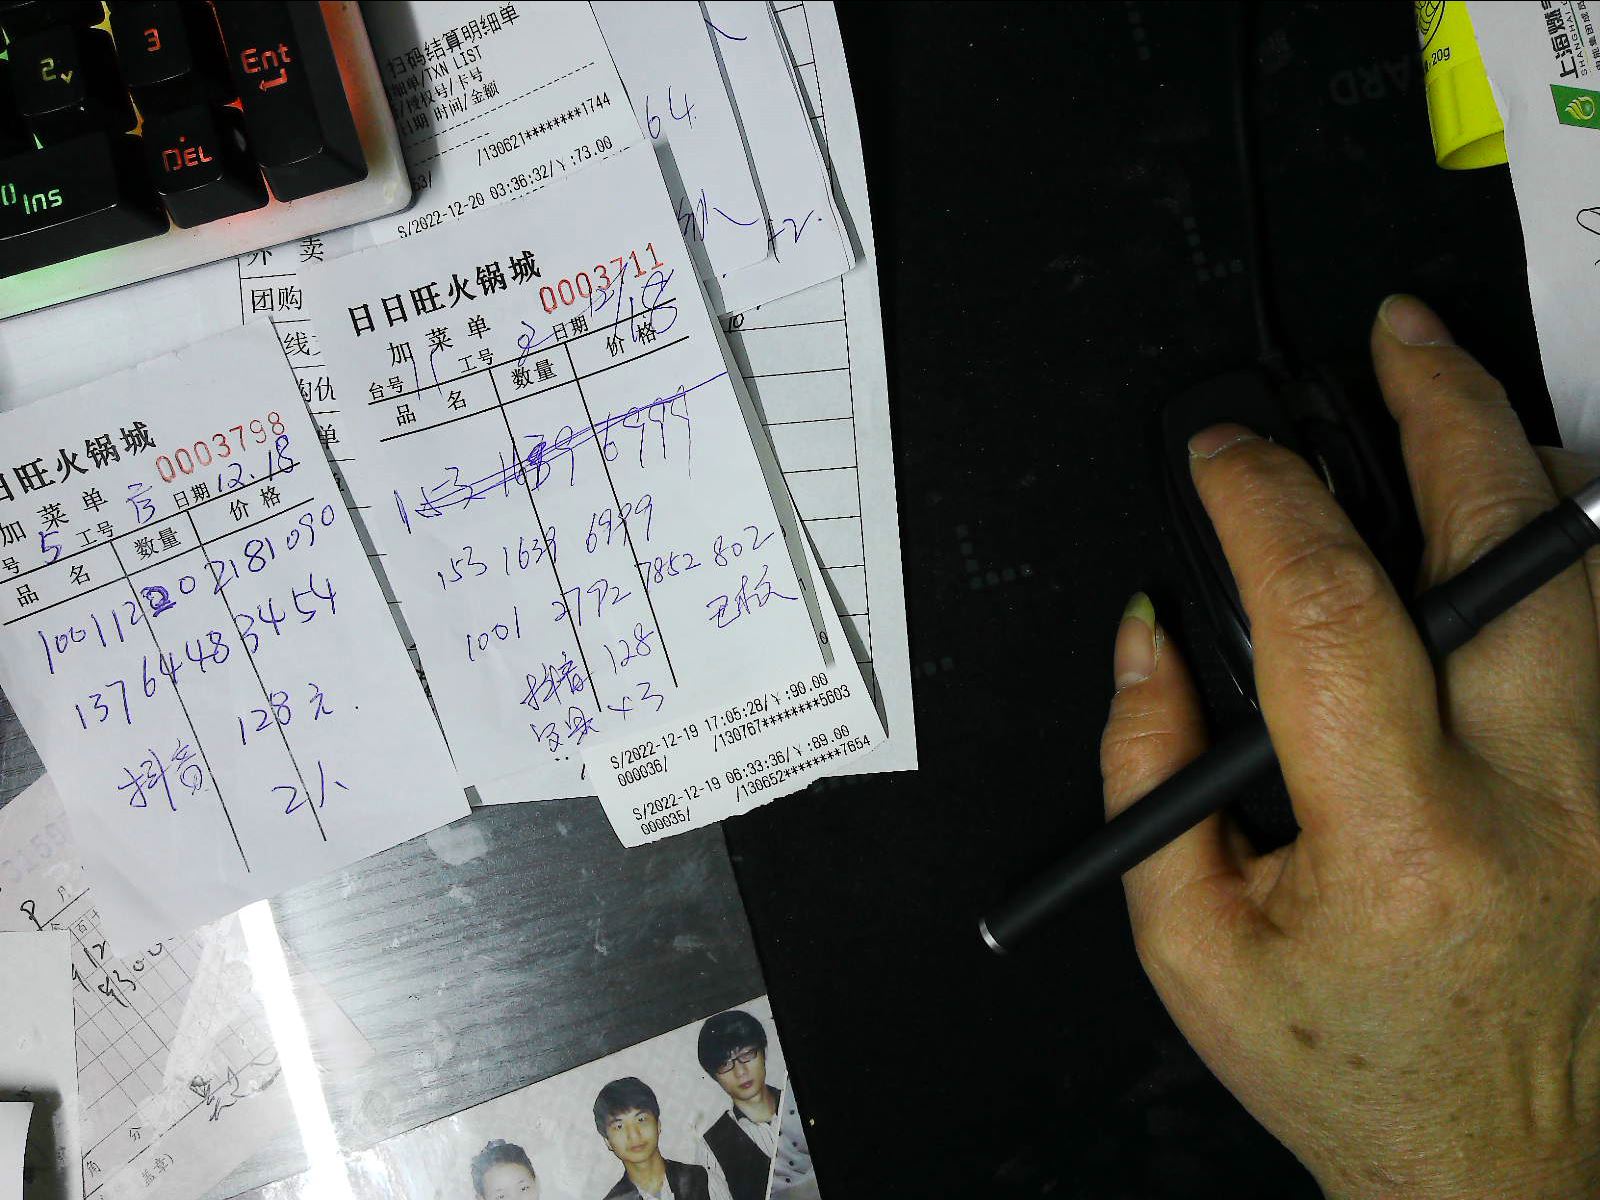 3
Ent
2
DEL
Ins
扫码结算明细单
细单/TXN LIST
/授权号/卡号
日期 时间/金额
/130621********1744
53/
S/2022-12-20 03:36:32/￥:73.00
64
42.
外 卖
团购
线
购
单
日日旺火锅城
0003711
加 菜 单
台号 11 工号 2 日期 12/18
品 名 数量 价 格
153 1639 6999
153 1639 6999
1001 2792 7852 802
已核
抖音 128
x3
S/2022-12-19 17:05:28/￥:90.00
000036/ /130767********5603
S/2022-12-19 06:33:36/￥:89.00
000035/ /130652********7654
日旺火锅城
0003798
加 菜 单
号 5 工号 日期 12.18
品 名 数量 价 格
100112 202181090
13764483454
抖音 128元.
2人
月
百 十
912
9300
角 分
盖章)
20g
上海燃
SHANGHAI
ARD